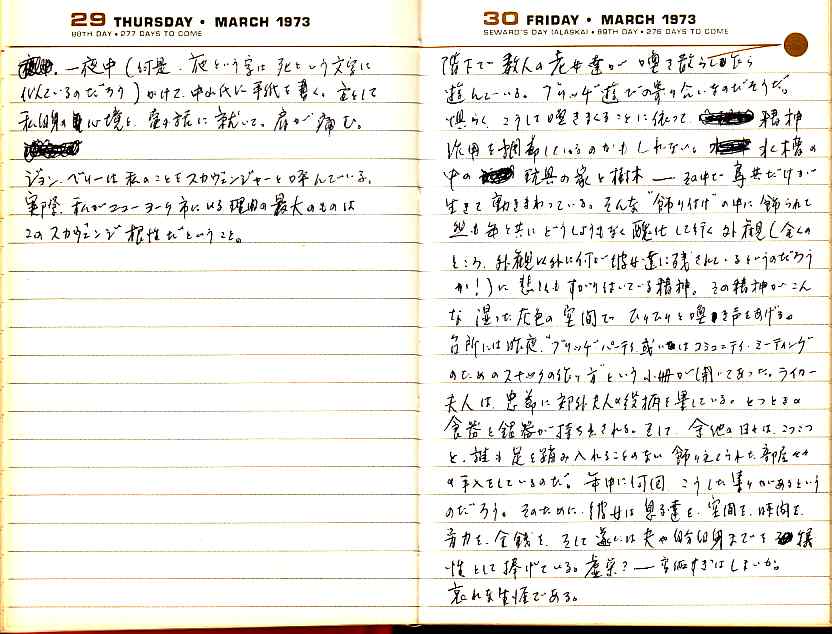 29 THURSDAY • MARCH 1973
88TH DAY • 277 DAYS TO COME
一夜中(何是、夜という字は死という文字に
似ているのだろう)かけて、中山氏に手紙を書く。主として
私自身の心境と、室内に就いて。肩が痛む。
ジョン・ベリーは私のことをスカヴェンジャーと呼んでいる。
実際、私がニューヨーク市にいる理由の最大のものは
このスカヴェンジ根性だということ。
30 FRIDAY • MARCH 1973
SEWARD'S DAY (ALASKA) • 89TH DAY • 276 DAYS TO COME
階下で数人の老女達が唾を散らしながら
遊んでいる。ブリッヂ遊びの寄り合いなのだそうだ。
惧らく、こうして喋きまくることに依って、精神
作用を調節しているのかもしれない。水槽の
中の玩具の家と樹木——その中で尊共だけが
生きて動きまわっている。そんな"飾り付け"の中に飾られて
年と共にどうしようもなく醜化して行く外観(全くの
ところ、外観以外に何が彼女達に残されているというのだろう
か!)に悲しくもすがりはいている精神。その精神がこん
な湿った灰色の空間でひりひりと声をあげる。
台所には昨夜、"ブリッヂパーティ或いはコミュニティ・ミーティング
のためのスナックの作り方"という小冊が開いてあった。ライカー
夫人は、忠節に郊外夫人の役柄を果している。とっときの
食器と銀器が持ち出される。そして、余他の日々は、こつこつ
と、誰も足を踏み入れることのない飾り立てられた部屋々々
の手入をしているのだ。年中に何回こうした集りがあるという
のだろう。そのために、彼女は息子達を、空間を、時間を、
労力を、金銭を、そして遂いには夫や自分自身までを犠
性として捧げている。虚栄?——高価すぎはしまいか。
哀れな生涯である。